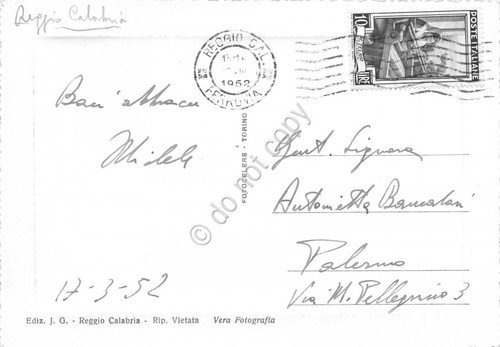 Reggio Calabria
REGGIO CAL.
1952
FERROVIA
POSTE ITALIANE
LIRE 10
Baci
Michele
17-3-52
FOTOCELERE - TORINO
do not copy
Gent. Signora
Antonietta
Palermo
Via M. Pellegrino 3
Ediz. J. G. - Reggio Calabria - Rip. Vietata Vera Fotografia